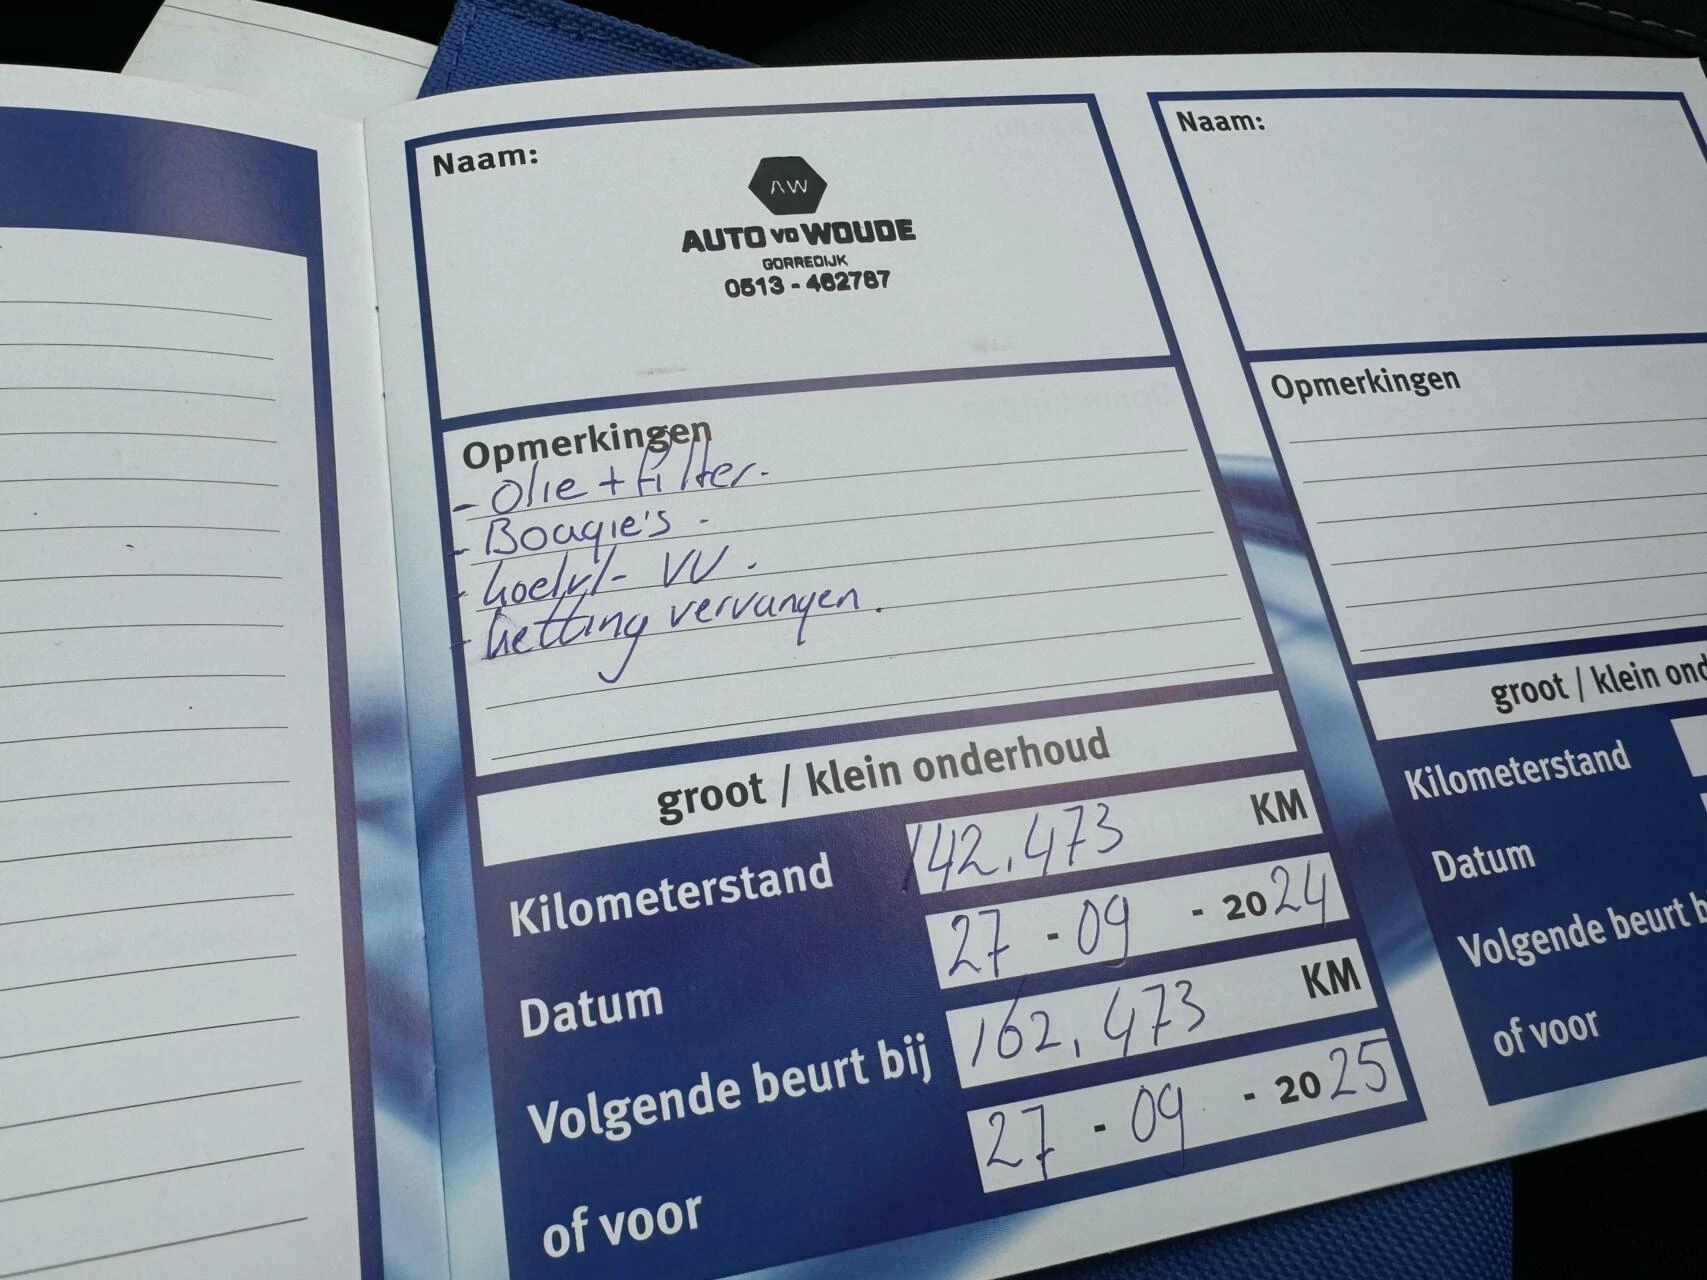 Naam:
AW
AUTO VD WOUDE
GORREDIJK
0513 - 462787
Opmerkingen
- Olie + Filter.
- Bougie's -
- koelvl - VV.
- ketting vervangen.
groot / klein onderhoud
Kilometerstand 142.473 KM
Datum 27 - 09 - 2024
Volgende beurt bij 162.473 KM
of voor 27 - 09 - 2025
Naam:
Opmerkingen
groot / klein ond
Kilometerstand
Datum
Volgende beurt b
of voor